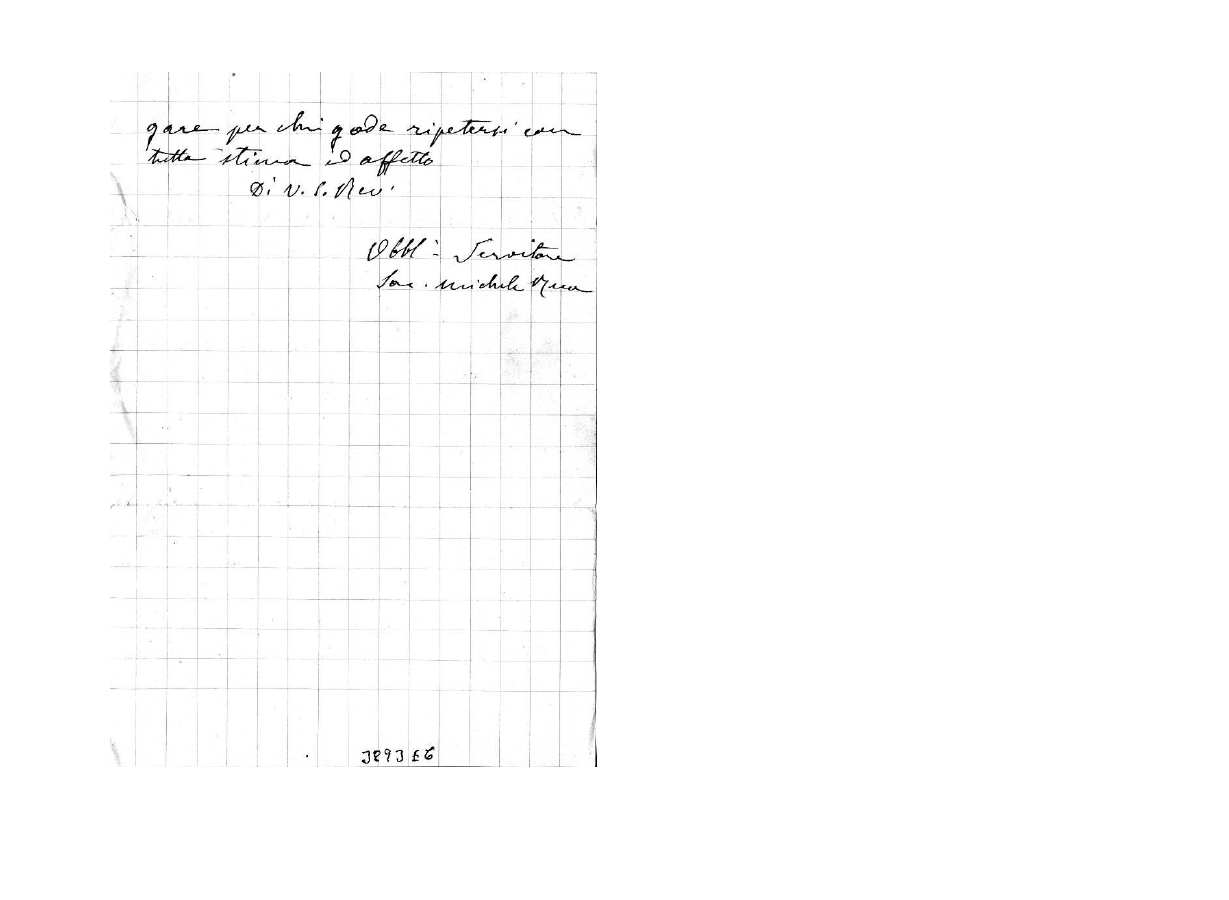 gare per chi gode ripetersi con
tutta stima ed affetto
Di V. S. Rev.
Obbl: Servitore
Sac. Michele Rua